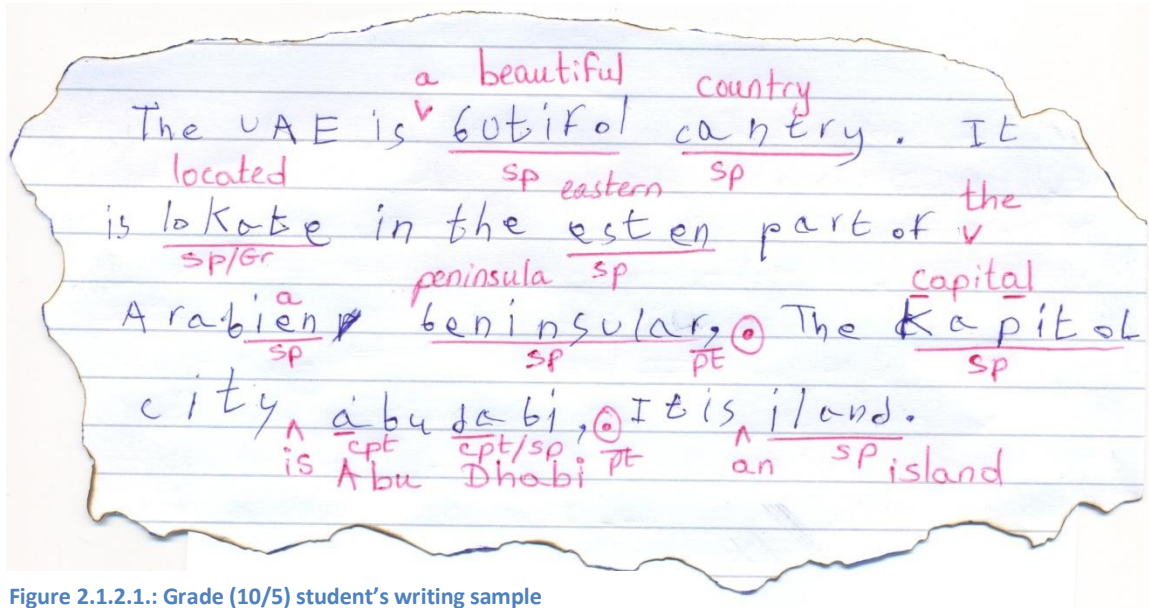 a beautiful country
The UAE is v butifol cantry. It
located sp eastern sp the
is lokate in the esten part of v
sp/Gr peninsula sp capital
Arabien a beninsular, The Kapitol
sp sp pt sp
city ^ abu dabi, It is ^ iland.
is cpt cpt/sp pt an sp island
Abu Dhabi
Figure 2.1.2.1.: Grade (10/5) student's writing sample